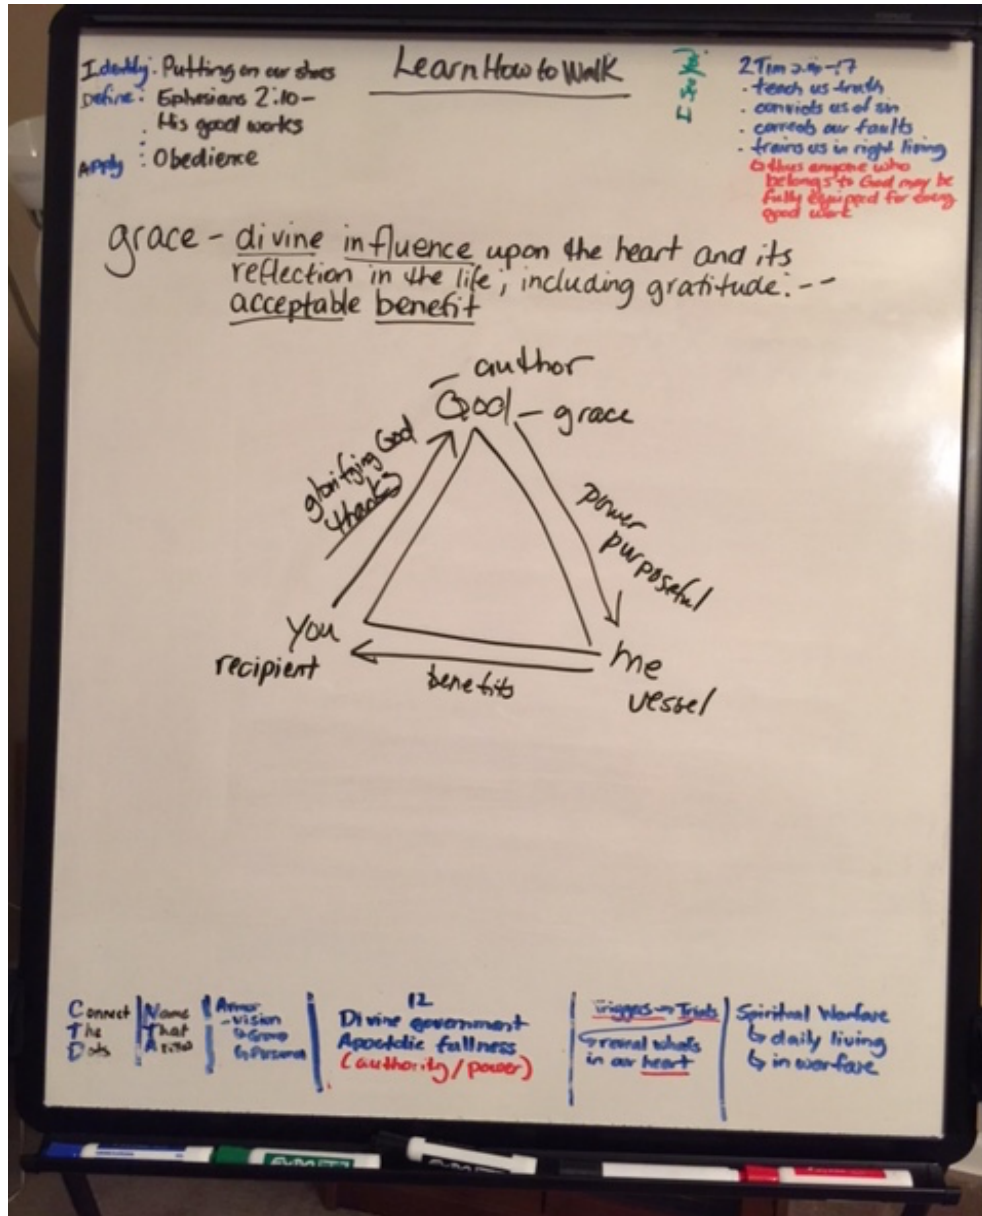 Learn How to Walk
Identify: Putting on our shoes
Define: Ephesians 2:10-
His good works
Apply: Obedience
2 Tim
. teach us truth
. convicts us of sin
. corrects our faults
. trains us in right living
thus anyone who
belongs to God may be
fully equipped for every
good work
grace - divine influence upon the heart and its
reflection in the life; including gratitude:--
acceptable benefit
author
God - grace
glorifying God
thanks
power
purposeful
you
recipient
me
vessel
benefits
Connect
The
Dots
Name
That
Armor
- vision
Group
Personal
12
Divine government
Apostolic fullness
(authority/power)
Triggers Trials
reveal whats
in our heart
Spiritual Warfare
daily living
in warfare
EXPO